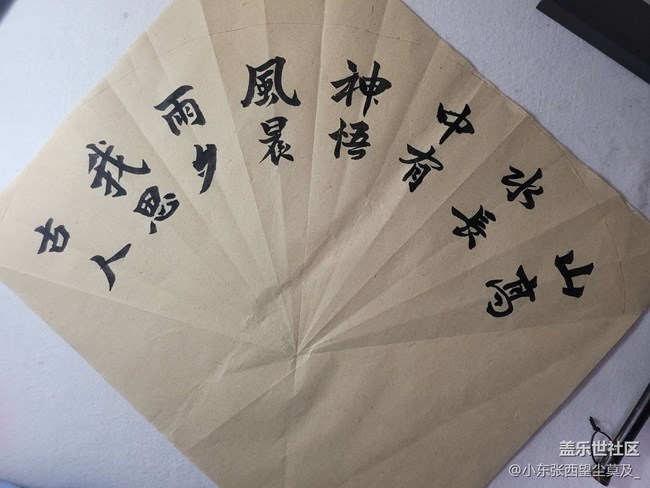 山高
水長
中有
神悟
風晨
雨夕
我思
古人
盖乐世社区
@小东张西望尘莫及_